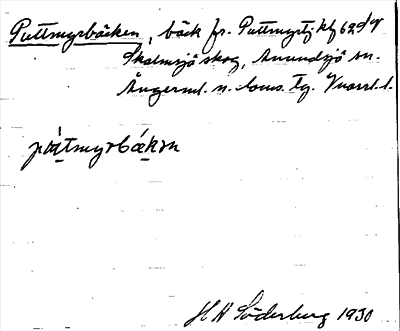 Puttmyrbäcken, bäck fr. Puttmyrtj. kbl 62 S V
Skalmsjö skog, Anundsjö sn.
Ångerml. n. doms. Tg. Vnorrl. l.
püttmyrbäkən
H H Söderberg 1930